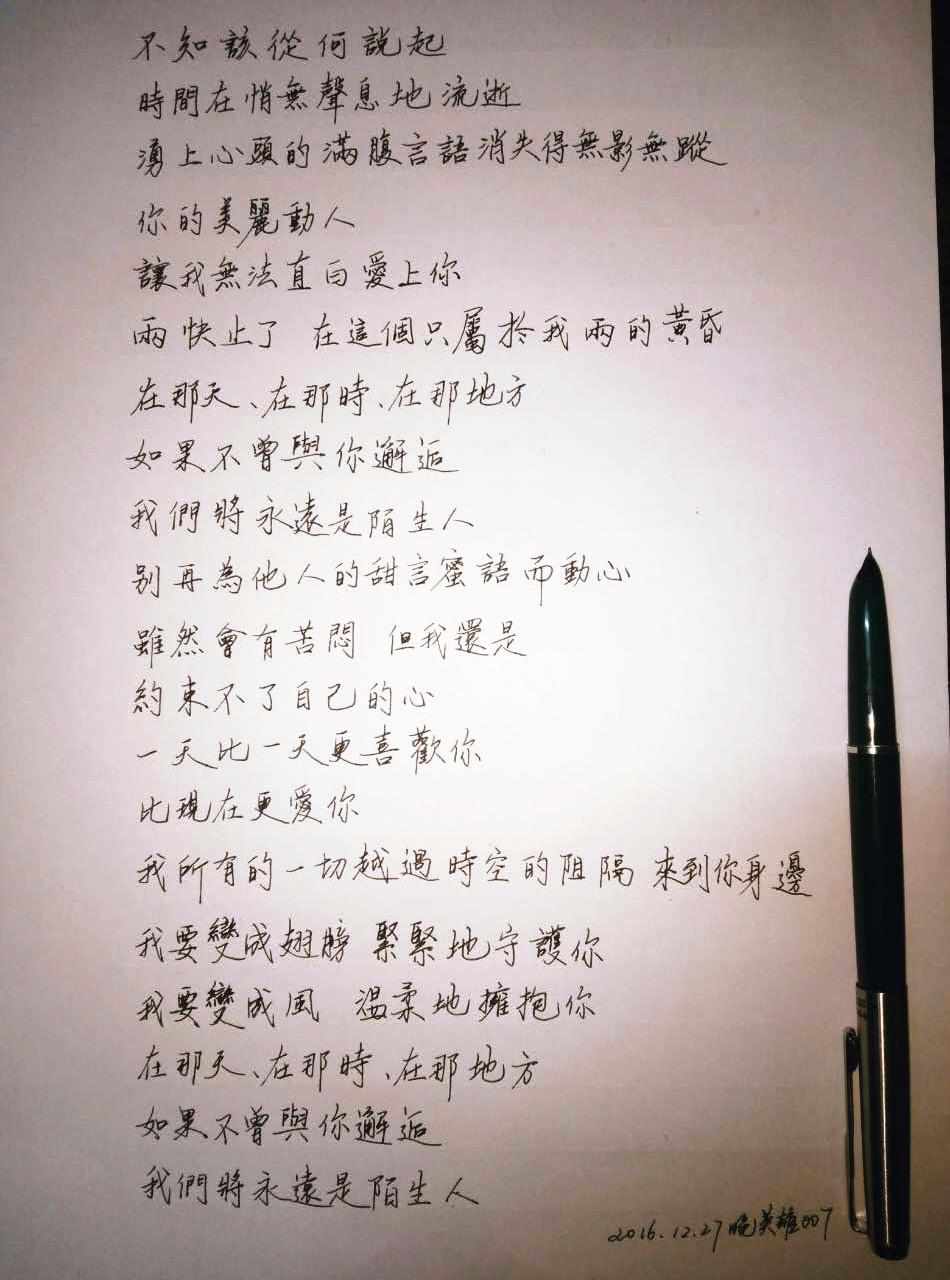 不知該從何說起
時間在悄無聲息地流逝
湧上心頭的滿腹言語消失得無影無蹤
你的美麗動人
讓我無法直白愛上你
雨快止了 在這個只屬於我兩的黃昏
在那天、在那時、在那地方
如果不曾與你邂逅
我們將永遠是陌生人
別再為他人的甜言蜜語而動心
雖然會有苦悶 但我還是
約束不了自己的心
一天比一天更喜歡你
比現在更愛你
我所有的一切越過時空的阻隔 來到你身邊
我要變成翅膀 緊緊地守護你
我要變成風 溫柔地擁抱你
在那天、在那時、在那地方
如果不曾與你邂逅
我們將永遠是陌生人
2016.12.27 晚英雄007